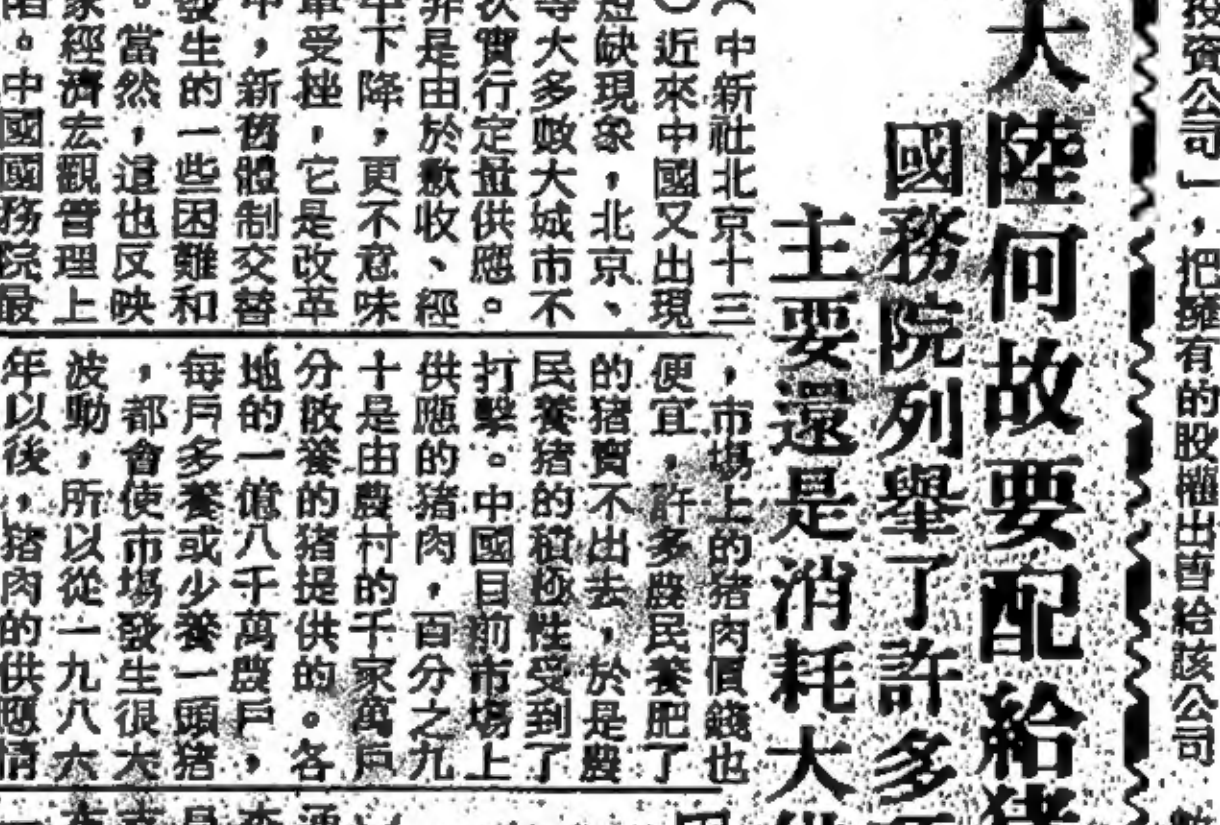 投資公司」，把擁有的股權出售給該公司
大陸何故要配給猪
國務院列舉了許多
主要還是消耗大
（中新社北京十三
）近來中國又出現
短缺現象，北京、
等大多數大城市不
次實行定量供應。
非是由於歉收、經
年下降，更不意味
革受挫，它是改革
中，新舊體制交替
發生的一些困難和
。當然，這也反映
家經濟宏觀管理上
。中國國務院最
，市場上的猪肉價錢也
便宜，許多農民養肥了
的猪賣不出去，於是農
民養猪的積極性受到了
打擊。中國目前市場上
供應的猪肉，百分之九
十是由農村的千家萬戶
分散養的猪提供的。各
地的一億八千萬農戶，
每戶多養或少養一頭猪
，都會使市場發生很大
波動，所以從一九八六
年以後，猪肉的供應情